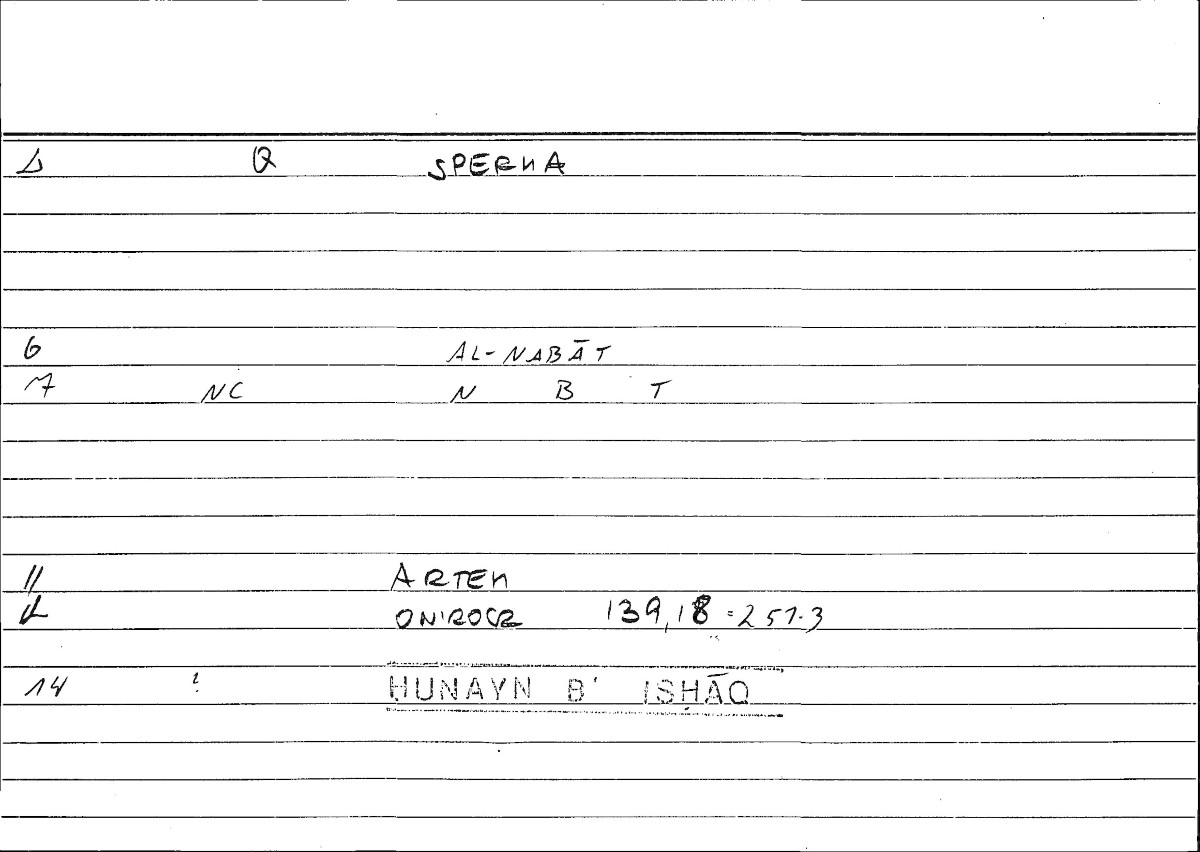 1 Q SPERMA
6 AL-NABĀT
7 NC N B T
11 ARTEM
12 ONIROCR 139,18 = 257.3
14 ? ḤUNAYN B' ISḤĀQ